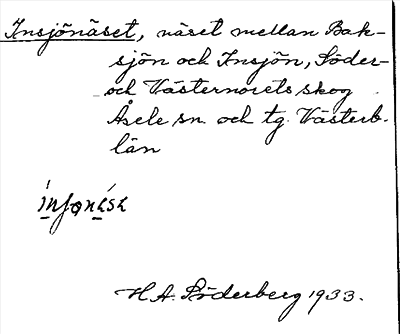 Insjönäset, näset mellan Bak-
sjön och Insjön, Söder-
och Västernorets skog
Åsele sn. och tg. Västerb.
län
H.A. Söderberg 1933.